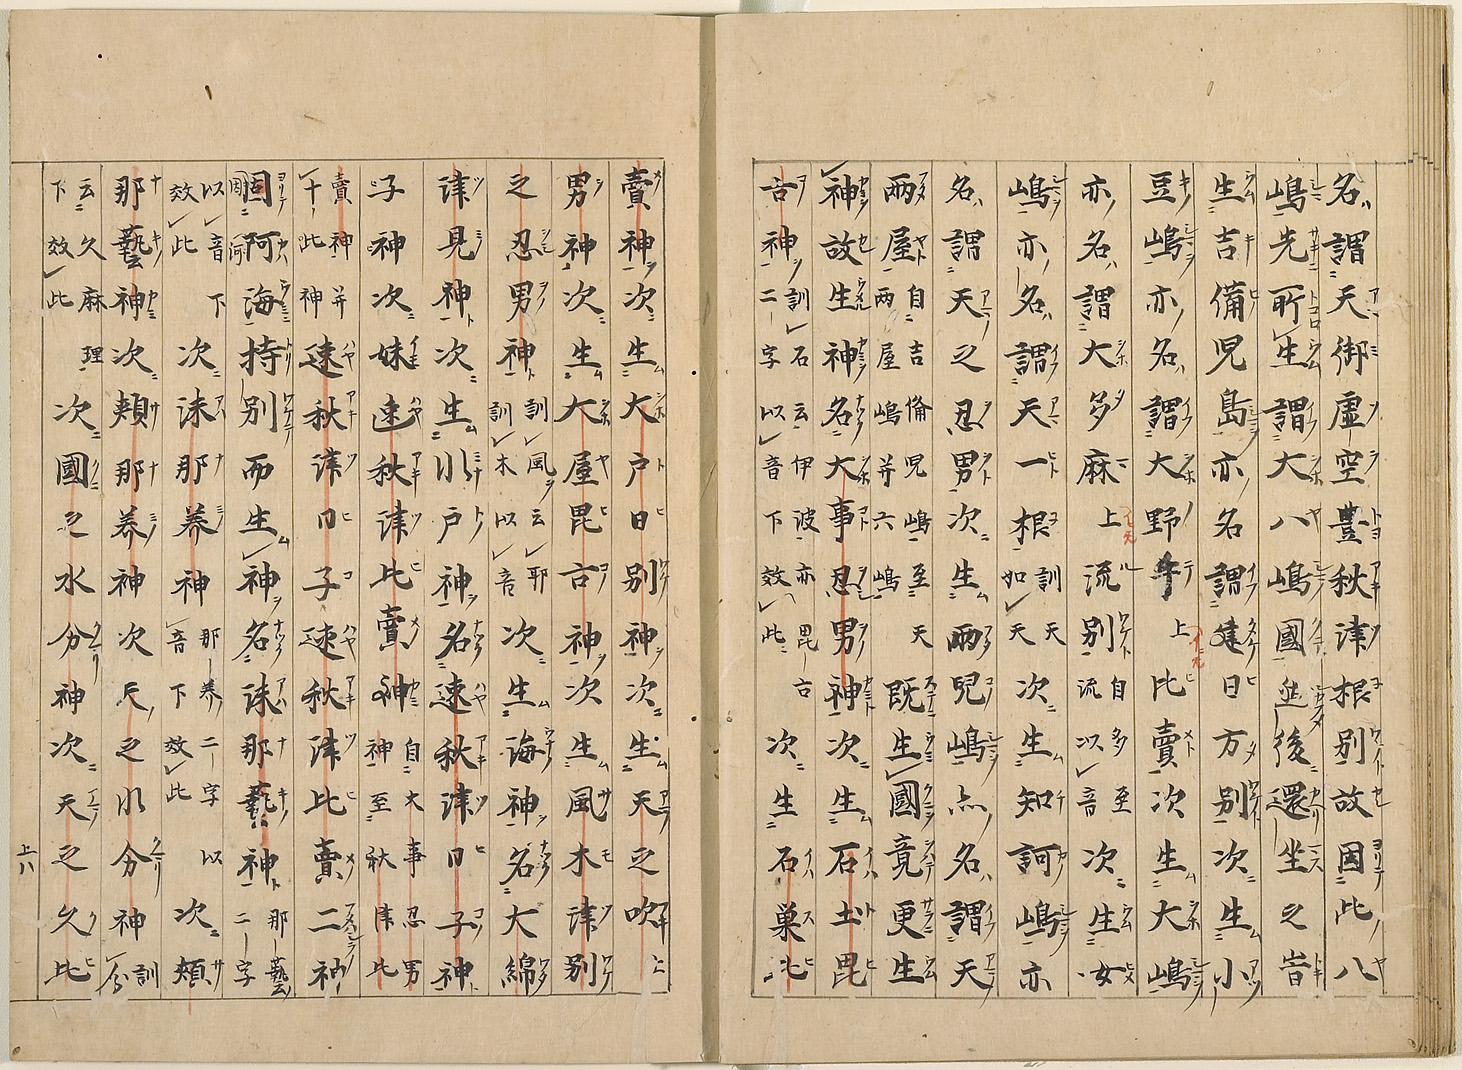 名謂天御虛空豐秋津根別故因此八
嶋先所生謂大八嶋國然後還坐之時
生吉備児島亦名謂建日方別次生小
豆嶋亦名謂大野手上比賣次生大嶋
亦名謂大多麻上流別自多至流以音次生女
嶋亦名謂天一根訓天如天次生知訶嶋亦
名謂天之忍男次生兩児嶋亦名謂天
兩屋自吉備児嶋至天兩屋嶋并六嶋既生國竟更生
神故生神名大事忍男神次生石土毘
古神訓石云伊波亦毘古二字以音下效此次生石巣比
賣神次生大戸日別神次生天之吹上
男神次生大屋毘古神次生風木津別
之忍男神訓風云耶訓木以音次生海神名大綿
津見神次生水戸神名速秋津日子神
子神次妹速秋津比賣神自大事忍男神至秋津比
賣神并十神此速秋津日子速秋津比賣二神
因河海持別而生神名沫那藝神那藝二字
以音下效此次沫那美神那美二字以音下效此次頰
那藝神次頰那美神次天之水分神訓分
云久麻理下效此次國之水分神次天之久比
上八